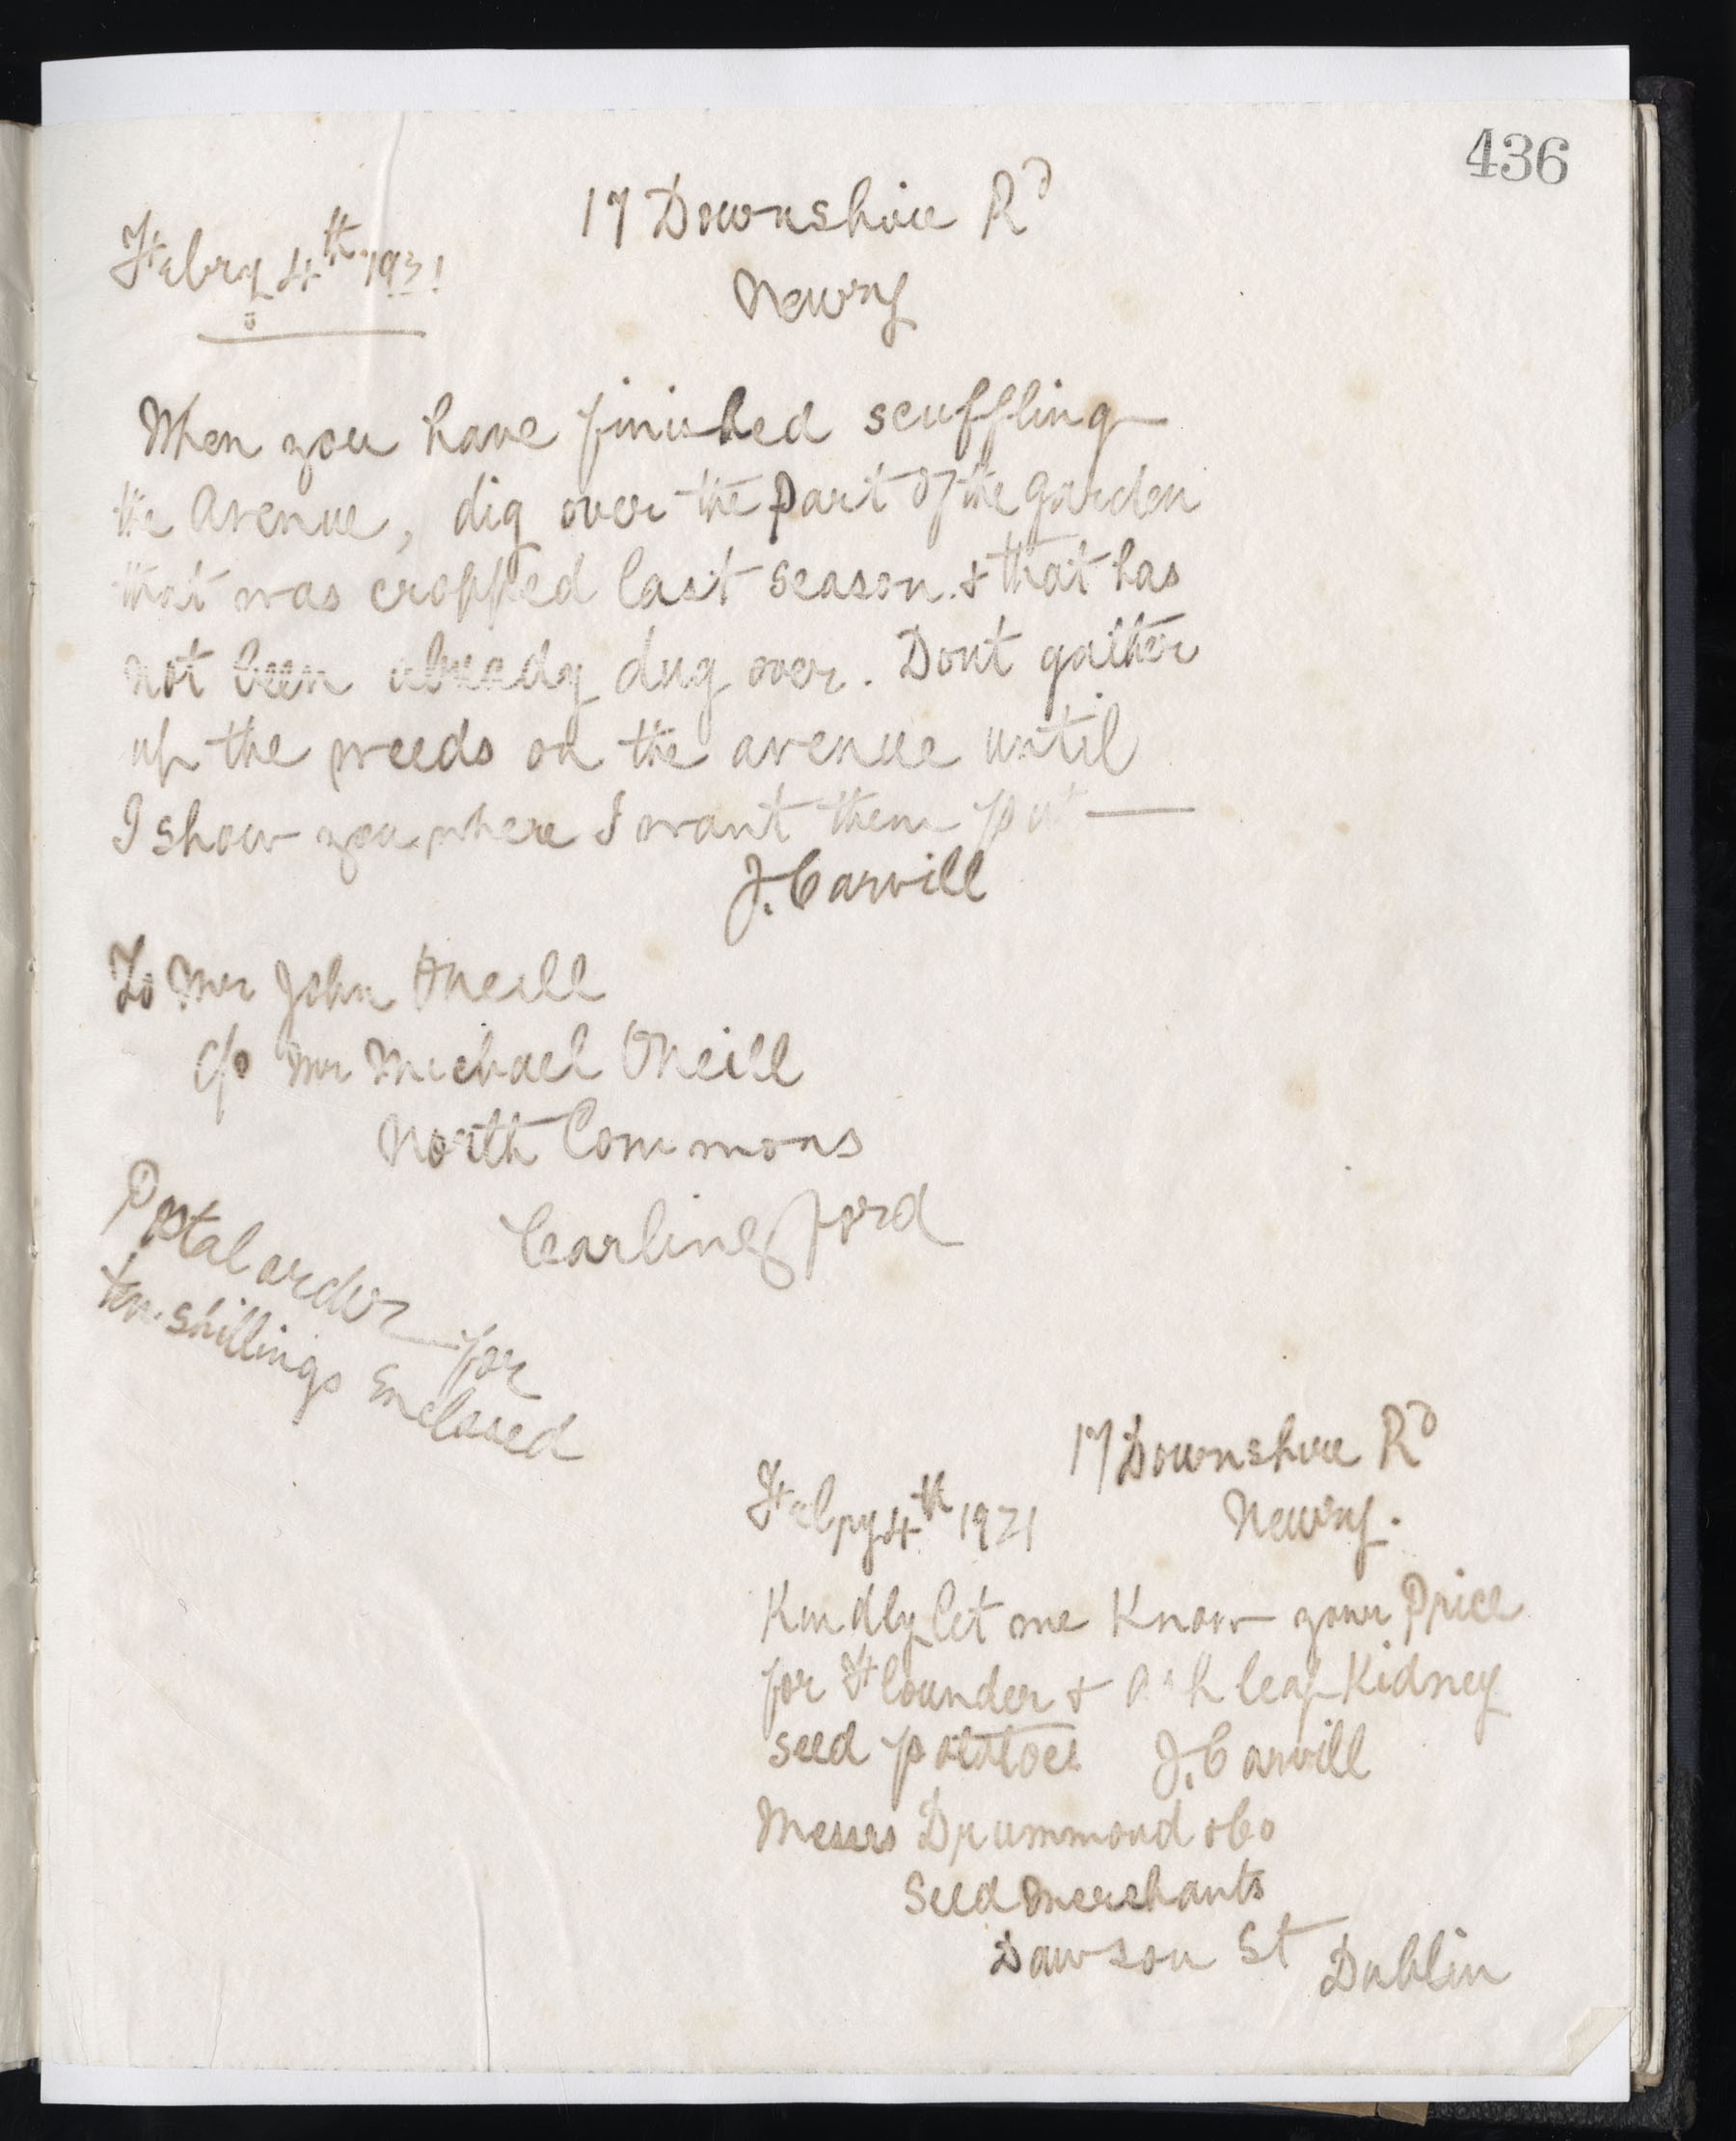 436
17 Downshire Rd
Newry
Febry 4th 1921
When you have finished scuffling
the Avenue, dig over the part of the garden
that was cropped last season & that has
not been already dug over. Dont gather
up the weeds on the avenue until
I show you where I want them put —
J. Carvill
To Mr John O'Neill
c/o Mr Michael O'Neill
North Commons
Carlingford
Postal order for
ten shillings Enclosed
17 Downshire Rd
Newry.
Febry 4th 1921
Kindly let me know your Price
for Flounder & Ash leaf Kidney
seed potatoes J. Carvill
Messrs Drummond & Co
Seed Merchants
Dawson St Dublin